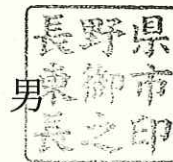 長野県
男
東御市
長之印